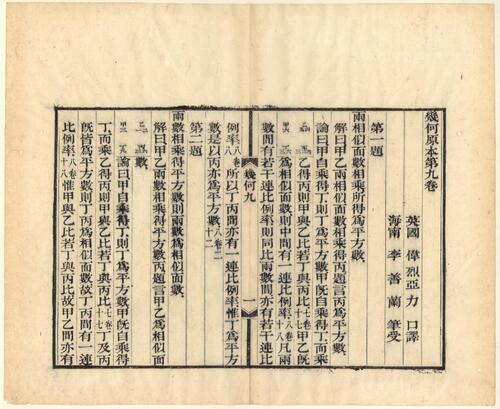 幾何原本第九卷
英國 偉烈亞力 口譯
海甯 李善蘭 筆受
第一題
兩相似面數相乘所得爲平方數
解曰甲乙兩相似面數相乘得丙題言丙爲平方數
論曰甲自乘得丁則丁爲平方數甲旣自乘得丁而乘
乙得丙則甲與乙比若丁與丙比七卷十七甲乙旣
爲相似面數則中間有一連比例率八卷十八凡兩
數間有若干連比例率則同比兩數間亦有若干連比
幾何九
一
例率八卷八所以丁丙間亦有一連比例率惟丁爲平方
數是以丙亦爲平方數八卷二十二
第二題
兩數相乘得平方數則兩數爲相似面數
解曰甲乙兩數相乘得平方數丙題言甲乙爲相似面
數
論曰甲自乘得丁則丁爲平方數甲旣自乘得
丁而乘乙得丙則甲與乙比若丁與丙比七卷十七丁及丙
旣皆爲平方數則丁丙爲相似面數故丁丙間有一連
比例率八卷十八惟甲與乙比若丁與丙比故甲乙間亦有